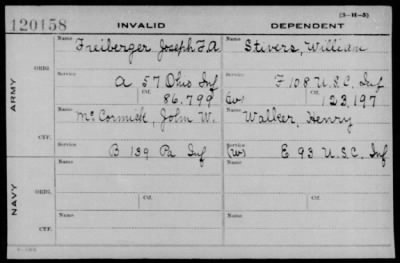 (3-H-5)
120158 INVALID DEPENDENT
Name Freiberger Joseph F. A Name Stivers, William
ORIG. Service A 57 Ohio Inf Service F 108 U.S.C. Inf
Ctf. 86.799 (w) Ctf. 123,197
ARMY
Name McCormick, John W. Name Walker, Henry
CTF. Service B 139 Pa Inf Service (w) E 93 U.S.C. Inf
Name Name
ORIG. Ctf. Ctf.
NAVY
Name Name
CTF.